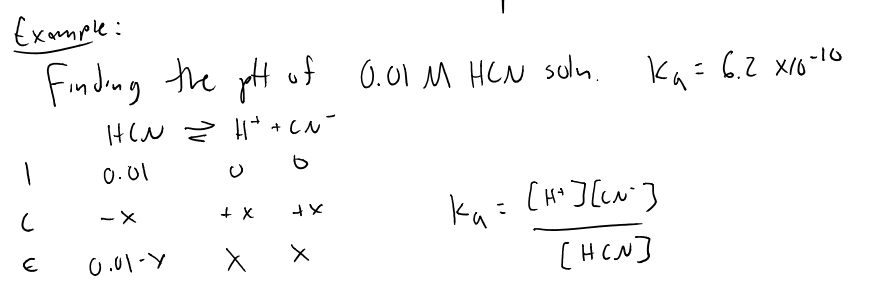 Example:
Finding the pH of 0.01 M HCN soln. Ka = 6.2 x10^-10
HCN ⇌ H+ + CN-
I 0.01 0 0
C -x +x +x
E 0.01-x x x
Ka = [H+][CN-]
[HCN]